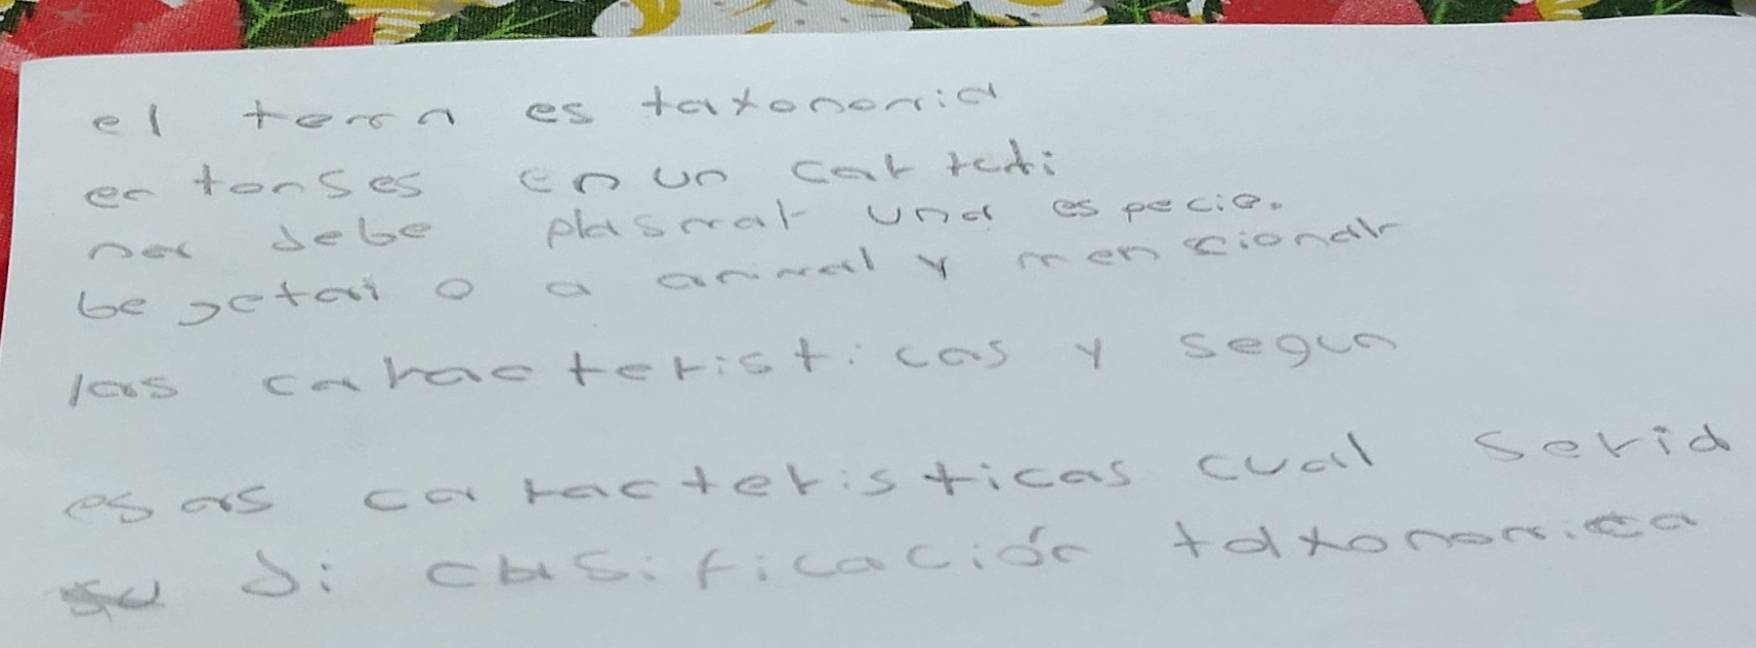 el tema es taxonomia
en tonses en un car teti
na debe plasmar una especie.
be getai o a animal y men cionar
las carac terist:cas y segun
esas caracteristicas cual seria
su di clasificación taxonomica